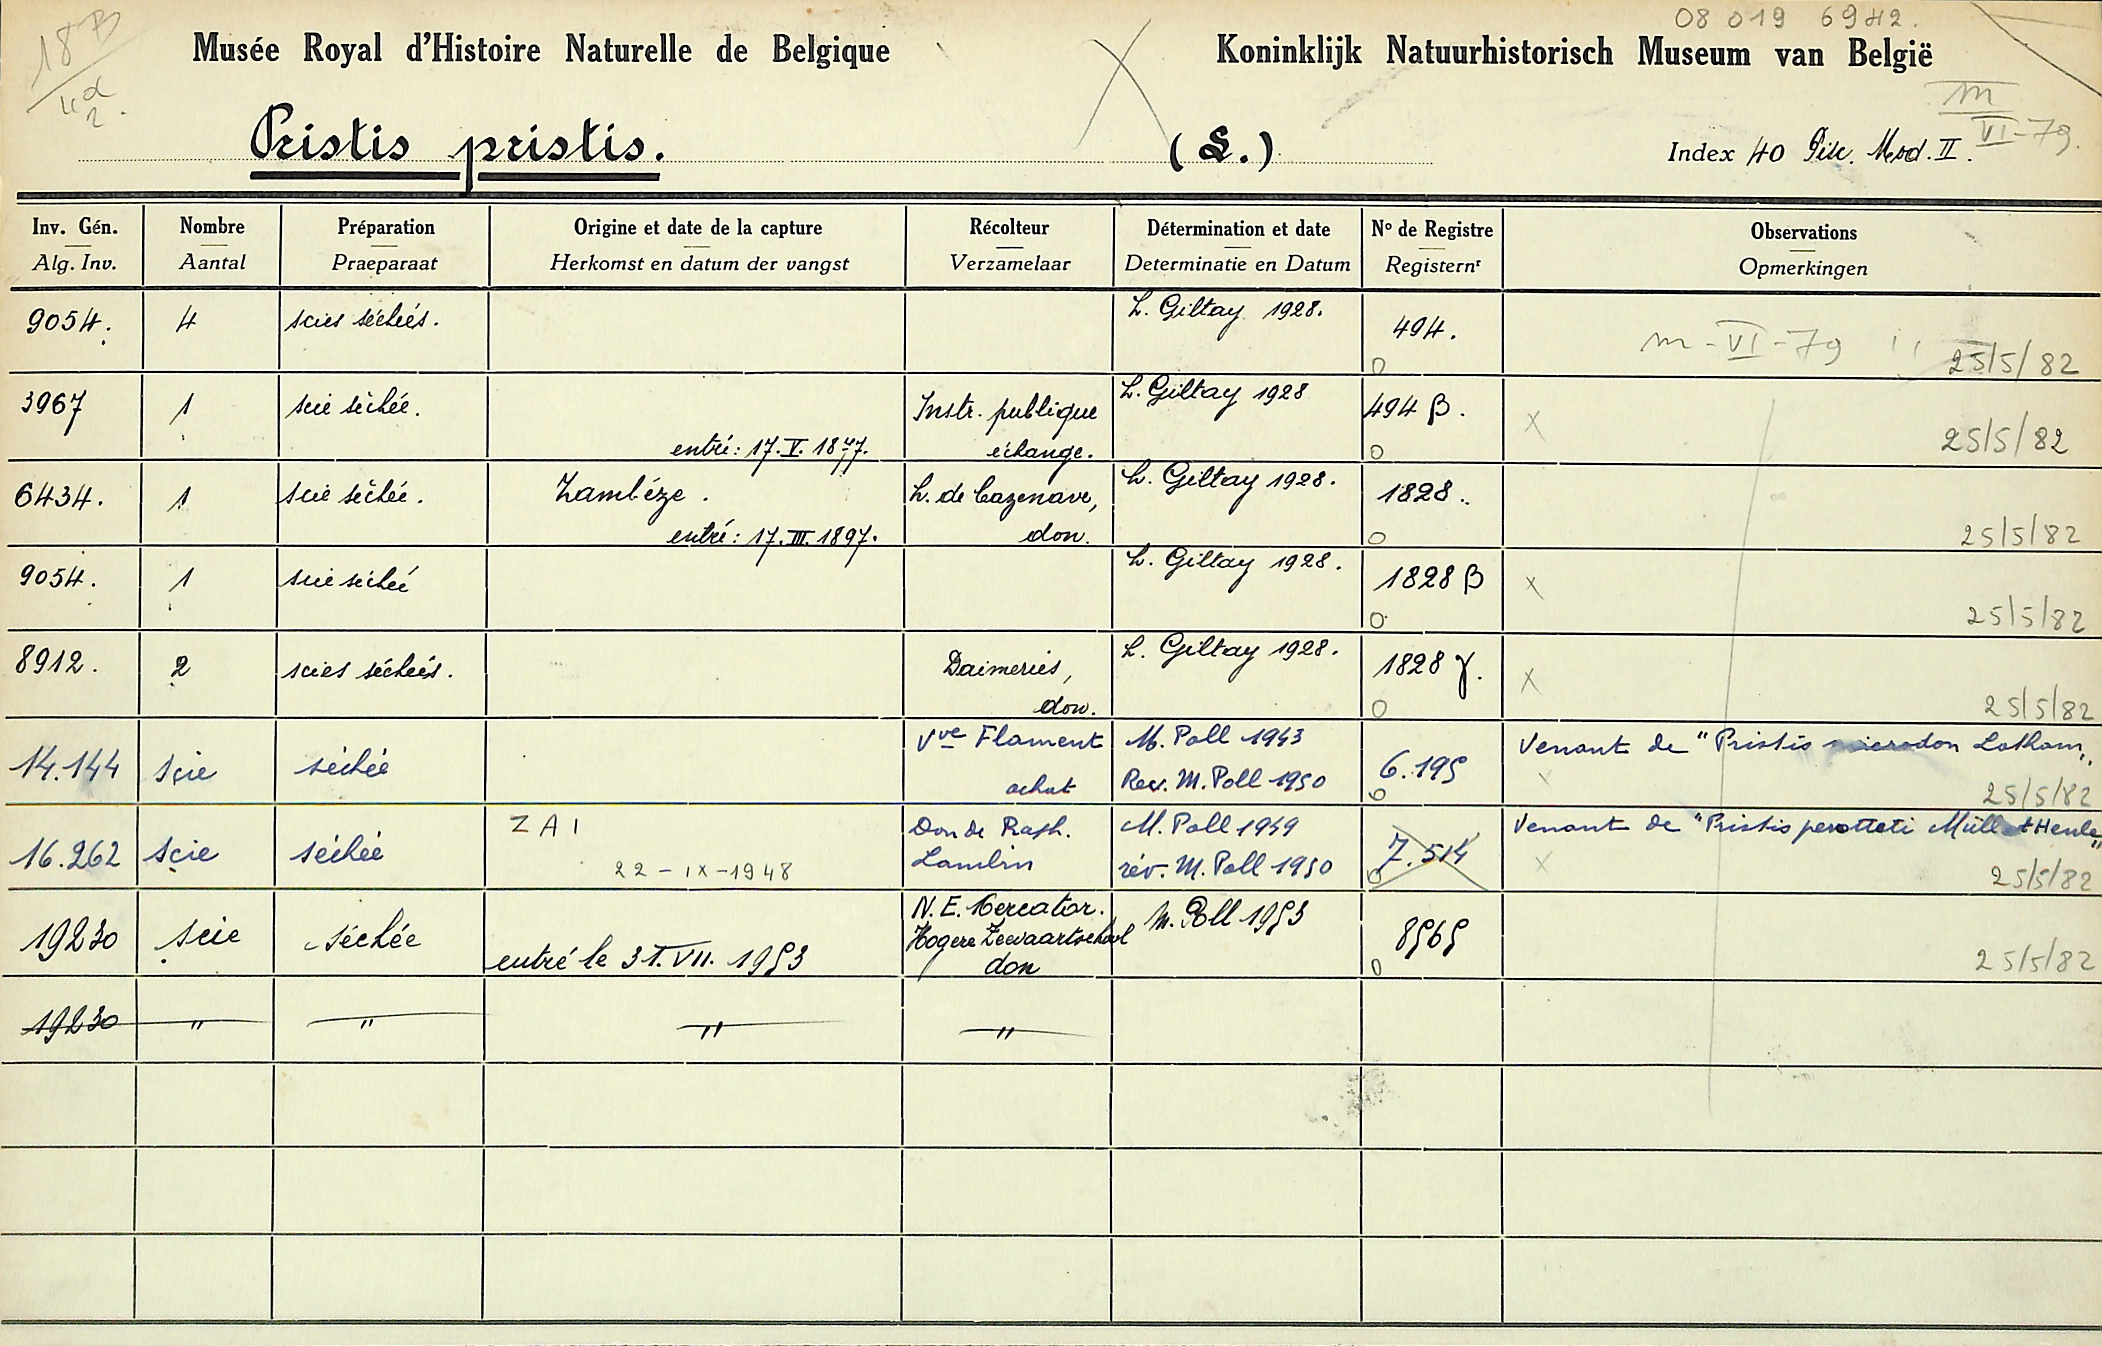 18 B
08 019 6942.
Musée Royal d'Histoire Naturelle de Belgique
Koninklijk Natuurhistorisch Museum van België
m
VI-79.
Pristis pristis.
(L.)
Index 40 Pisc. Mod. II.
Inv. Gén. Nombre Préparation Origine et date de la capture Récolteur Détermination et date Nº de Registre Observations
Alg. Inv. Aantal Praeparaat Herkomst en datum der vangst Verzamelaar Determinatie en Datum Registernr Opmerkingen
9054. 4 scies séchées. L. Giltay 1928. 494. m-VI-79
25/5/82
3967 1 scie séchée. Instr. publique L. Giltay 1928 494 β. x
entré: 17.V.1877. échange. 25/5/82
6434. 1 scie séchée. Zambéze. L. de Cazenave, L. Giltay 1928. 1828.
entré: 17.III.1897. don. 25/5/82
9054. 1 scie séchée L. Giltay 1928. 1828 β x
25/5/82
8912. 2 scies séchées. Daimeries, L. Giltay 1928. 1828 γ. x
don. 25/5/82
14.144 scie séchée Vve Flament M. Poll 1943 6.195 Venant de "Pristis microdon Latham„
achat Rev. M. Poll 1950 x 25/5/82
16.262 scie séchée ZAI Don de Raph. M. Poll 1949 7.514 Venant de "Pristis perotteti Müll et Henle„
22-IX-1948 Lamlin rév. M. Poll 1950 x 25/5/82
19230 scie séchée N.E. Mercator. M. Poll 1953 8565
Hogere Zeevaartschool
entré le 31.VII.1953 don 25/5/82
19230 " " " "